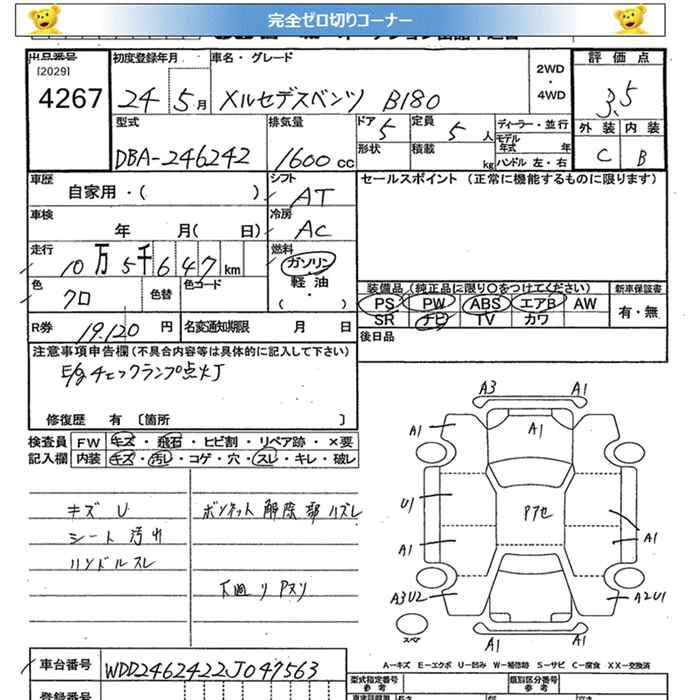 完全ゼロ切りコーナー
出品番号 初度登録年月 車名・グレード 2WD ・ 4WD 評価点
[2029]
4267 24 5月 メルセデスベンツ B180 3.5
型式 排気量 ドア 5 定員 5人 ディーラー・並行 外装 内装
DBA-246242 1600cc 形状 積載 kg モデル年式 年 ハンドル 左・右 C B
車歴 シフト セールスポイント (正常に機能するものに限ります)
自家用・( ) AT
車検 冷房
年 月( 日) AC
走行 燃料
10万5千647km ガソリン
色 色替 色コード 軽油 装備品 (純正品に限り○をつけてください) 新車保証書
クロ ・( ) PS PW ABS エアB AW 有・無
R券 19,120円 名変通知期限 月 日 SR ナビ TV カワ
注意事項申告欄(不具合内容等は具体的に記入して下さい) 後日品
E/gチェックランプ点灯
修復歴 有 〔箇所 〕
検査員 FW キズ・飛石・ヒビ割・リペア跡・×要
記入欄 内装 キズ・汚れ・コゲ・穴・スレ・キレ・破レ
キズ U ボンネット 解除部ハズレ
シート 汚れ
ハンドルスレ
下廻り
A3 A1
A1 A1
U1
A1 A1
A3U2 A2U1
スペア A1 A1
A-キズ E-エクボ U-凹み W-補修跡 S-サビ C-腐食 XX-交換済
車台番号 WDD2462422J047563
型式指定番号 参考 類別区分番号 参考
登録番号